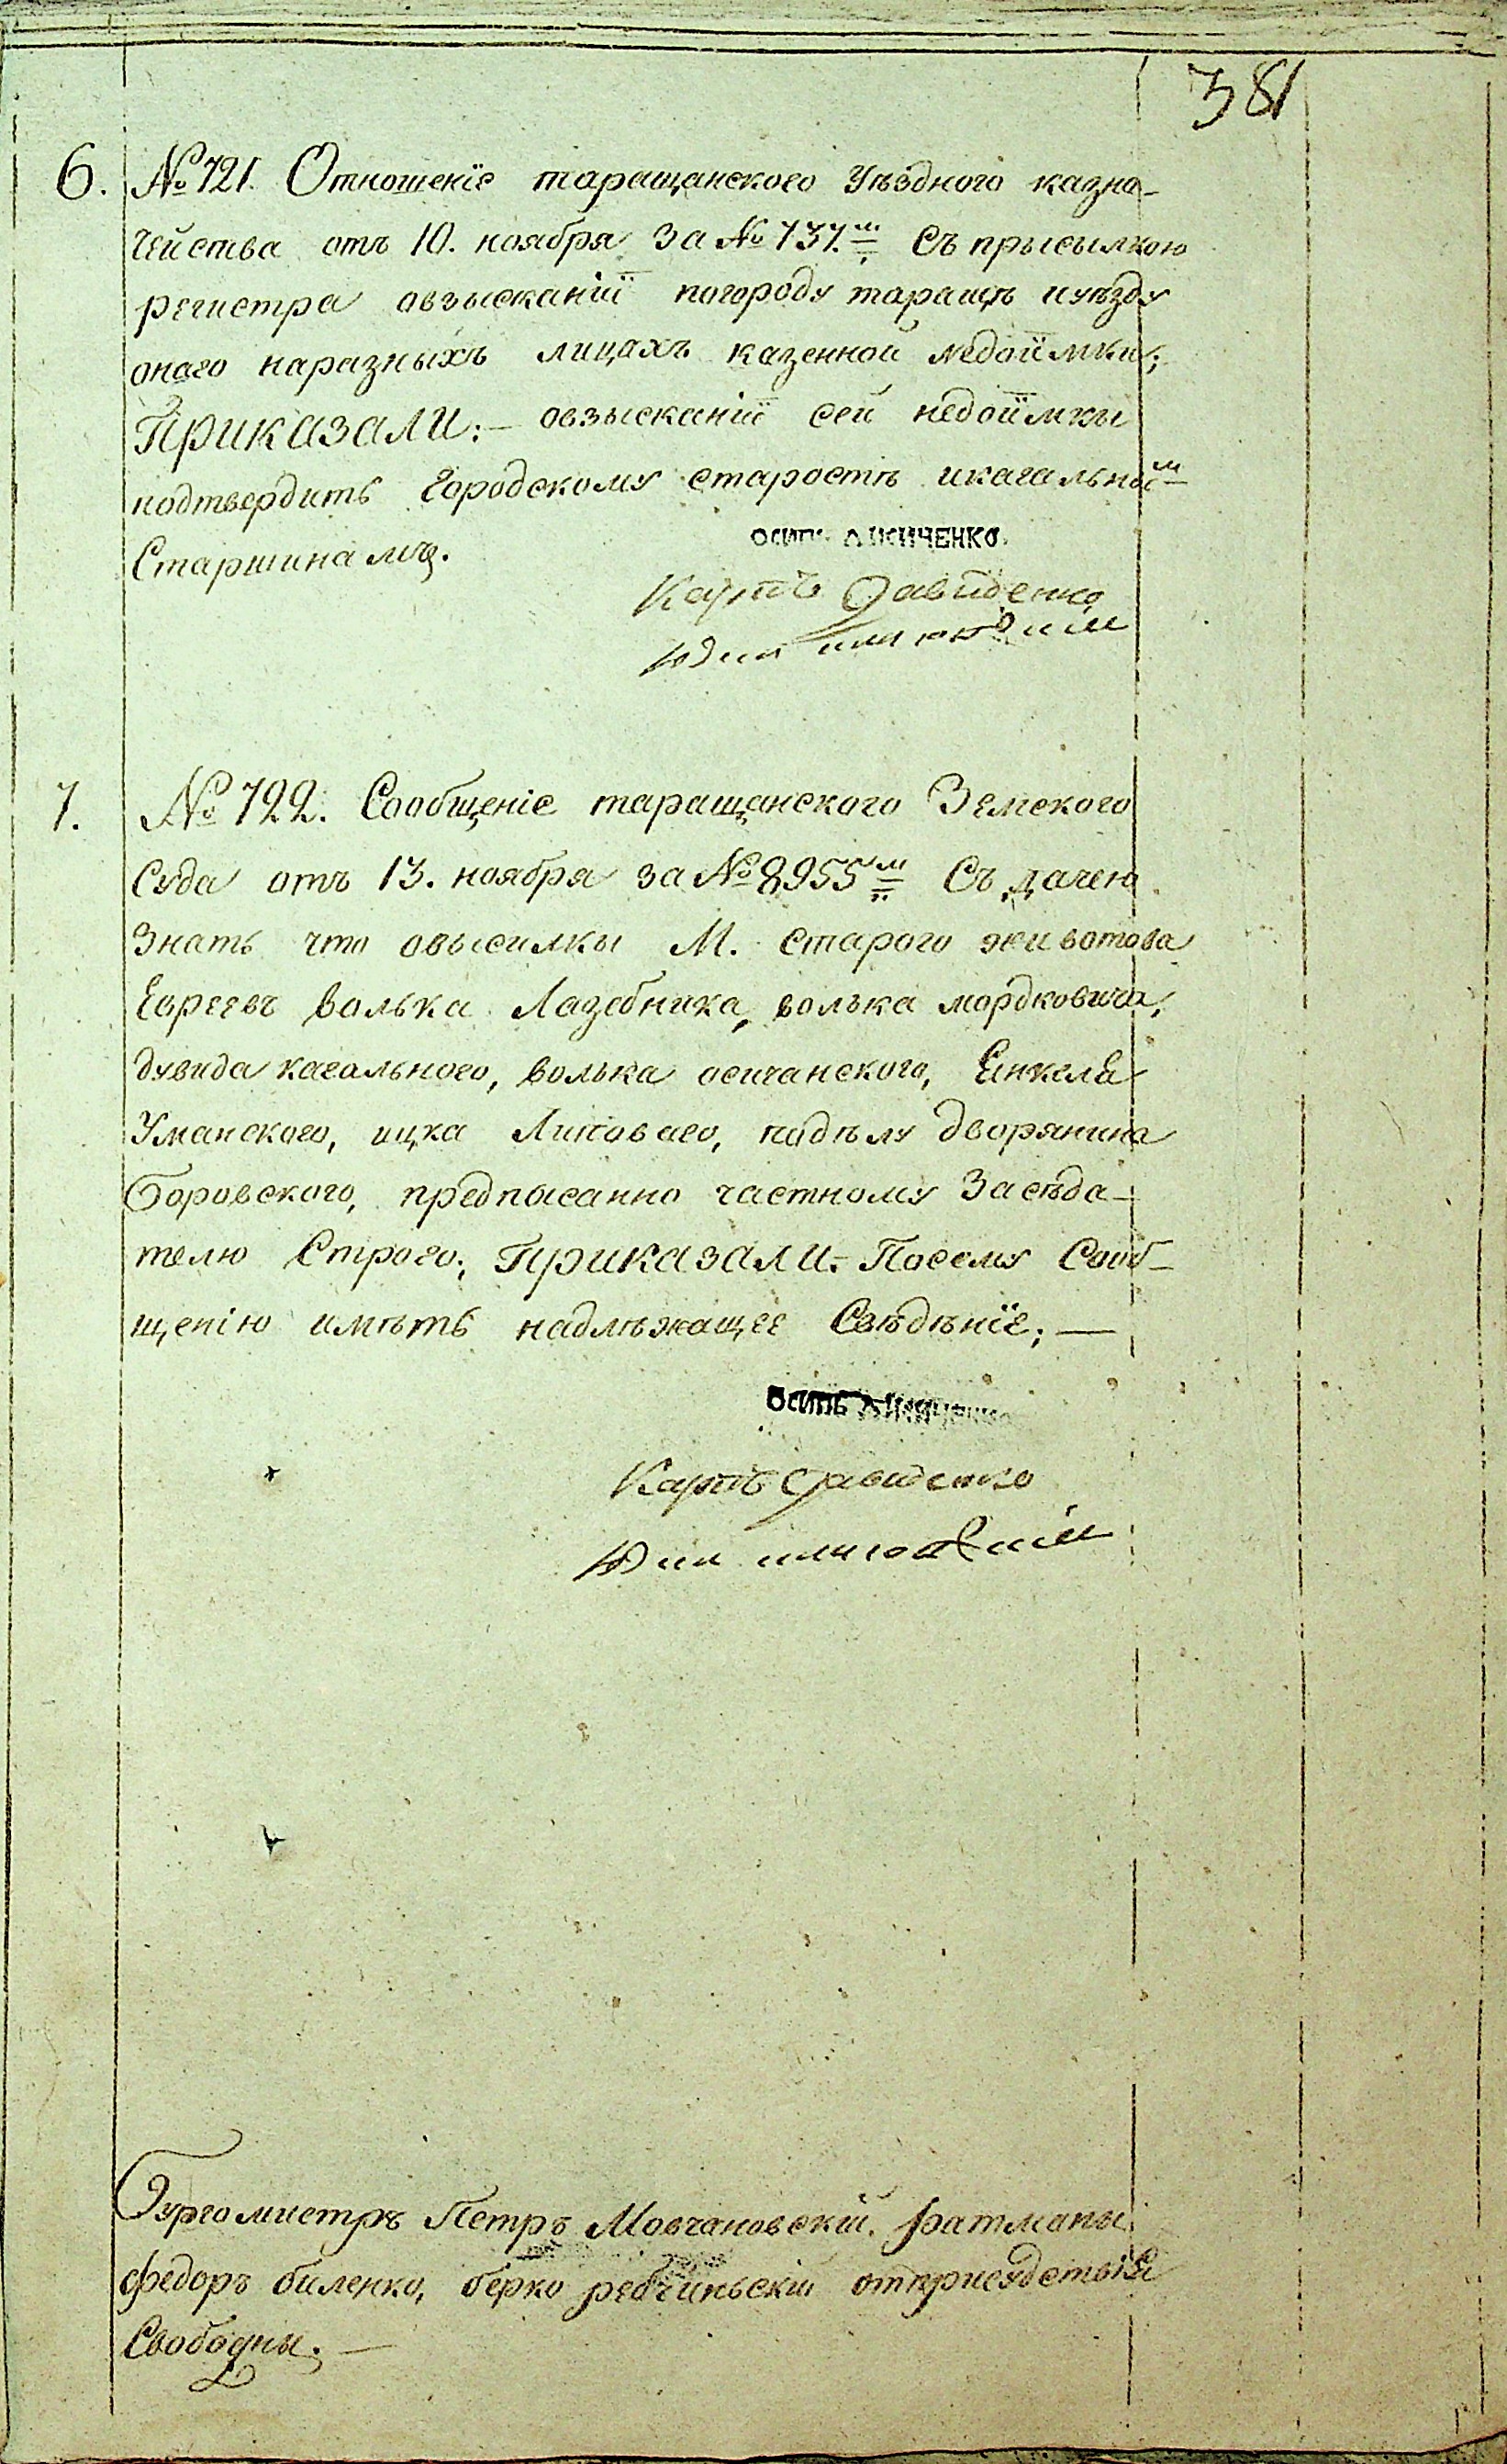 381
6. № 721. Отношенїе таращанского Уѣздного казна-
чейства отъ 10. ноября за № 737.м Съ прысылкою
регистра овзысканіи погороду таращѣ иуѣзду
оного наразныхъ лицахъ казенной недоимки;
Приказали:- овзысканіи сей недоимкы
подтвердить Городскому старостѣ икагальным
Старшинамъ.
осипъ лисиченко.
Карпъ Давиденко
7. № 722. Сообщеніе таращанского Земского
Суда отъ 13. ноября за № 8955м Съ дачею
Знать что овысилкы М. Старого животова
Евреевъ Волька Лазебника, волька мордковича,
дувида кагального, волька осичанского, Енкеля
Уманского, ицка Липоваго, подѣлу дворянина
Боровского, предпысанно частному Засѣда-
телю Строго; Приказали:- Посему Сооб-
щенію имѣть надлѣжащее Свѣдѣнїе; —
осипъ лисиченко
Карпъ Давиденко
Бургомистръ Петръ Мовчановскій. ратманы
федоръ биленко, берко ребчиньскій отприсудствія
Свободны. —